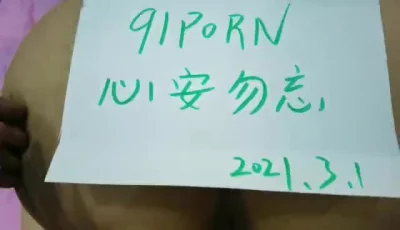 91PORN
心安勿忘
2021.3.1